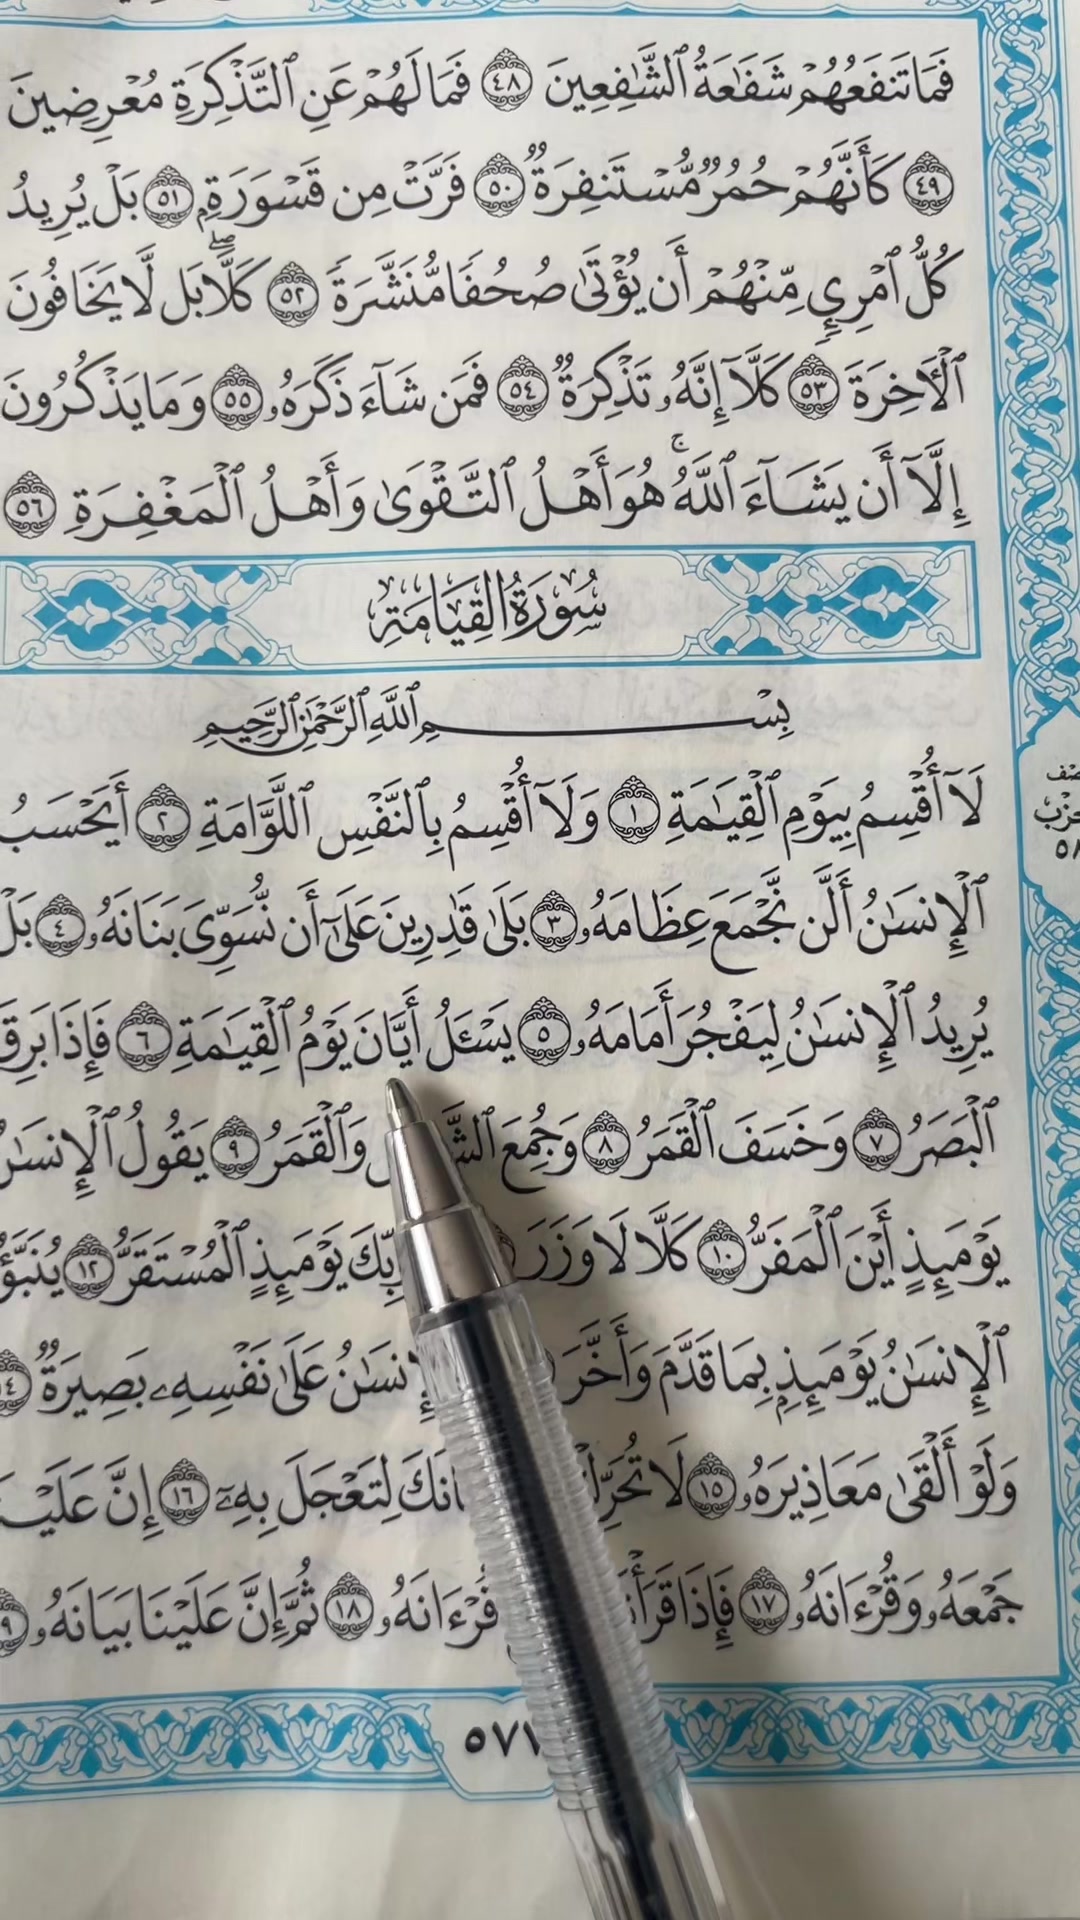 فَمَا تَنفَعُهُمْ شَفَٰعَةُ ٱلشَّٰفِعِينَ ٤٨ فَمَا لَهُمْ عَنِ ٱلتَّذْكِرَةِ مُعْرِضِينَ
٤٩ كَأَنَّهُمْ حُمُرٌ مُّسْتَنفِرَةٌ ٥٠ فَرَّتْ مِن قَسْوَرَةٍۭ ٥١ بَلْ يُرِيدُ
كُلُّ ٱمْرِئٍ مِّنْهُمْ أَن يُؤْتَىٰ صُحُفًا مُّنَشَّرَةً ٥٢ كَلَّاۖ بَل لَّا يَخَافُونَ
ٱلْأَخِرَةَ ٥٣ كَلَّآ إِنَّهُۥ تَذْكِرَةٌ ٥٤ فَمَن شَآءَ ذَكَرَهُۥ ٥٥ وَمَا يَذْكُرُونَ
إِلَّآ أَن يَشَآءَ ٱللَّهُۚ هُوَ أَهْلُ ٱلتَّقْوَىٰ وَأَهْلُ ٱلْمَغْفِرَةِ ٥٦
سُورَةُ القِيَامَةِ
بِسْمِ ٱللَّهِ ٱلرَّحْمَٰنِ ٱلرَّحِيمِ
لَآ أُقْسِمُ بِيَوْمِ ٱلْقِيَٰمَةِ ١ وَلَآ أُقْسِمُ بِٱلنَّفْسِ ٱللَّوَّامَةِ ٢ أَيَحْسَبُ
ٱلْإِنسَٰنُ أَلَّن نَّجْمَعَ عِظَامَهُۥ ٣ بَلَىٰ قَٰدِرِينَ عَلَىٰٓ أَن نُّسَوِّيَ بَنَانَهُۥ ٤ بَلْ
يُرِيدُ ٱلْإِنسَٰنُ لِيَفْجُرَ أَمَامَهُۥ ٥ يَسْـَٔلُ أَيَّانَ يَوْمُ ٱلْقِيَٰمَةِ ٦ فَإِذَا بَرِقَ
ٱلْبَصَرُ ٧ وَخَسَفَ ٱلْقَمَرُ ٨ وَجُمِعَ وَٱلْقَمَرُ ٩ يَقُولُ ٱلْإِنسَٰنُ
يَوْمَئِذٍ أَيْنَ ٱلْمَفَرُّ ١٠ كَلَّا لَا وَزَرَ يَوْمَئِذٍ ٱلْمُسْتَقَرُّ ١٢ يُنَبَّؤُا۟
ٱلْإِنسَٰنُ يَوْمَئِذٍۭ بِمَا قَدَّمَ وَأَخَّرَ عَلَىٰ نَفْسِهِۦ بَصِيرَةٌ ١٤
وَلَوْ أَلْقَىٰ مَعَاذِيرَهُۥ ١٥ لَا لِتَعْجَلَ بِهِۦٓ ١٦ إِنَّ
جَمْعَهُۥ وَقُرْءَانَهُۥ ١٧ فَإِذَا قُرْءَانَهُۥ ١٨ ثُمَّ إِنَّ عَلَيْنَا بَيَانَهُۥ